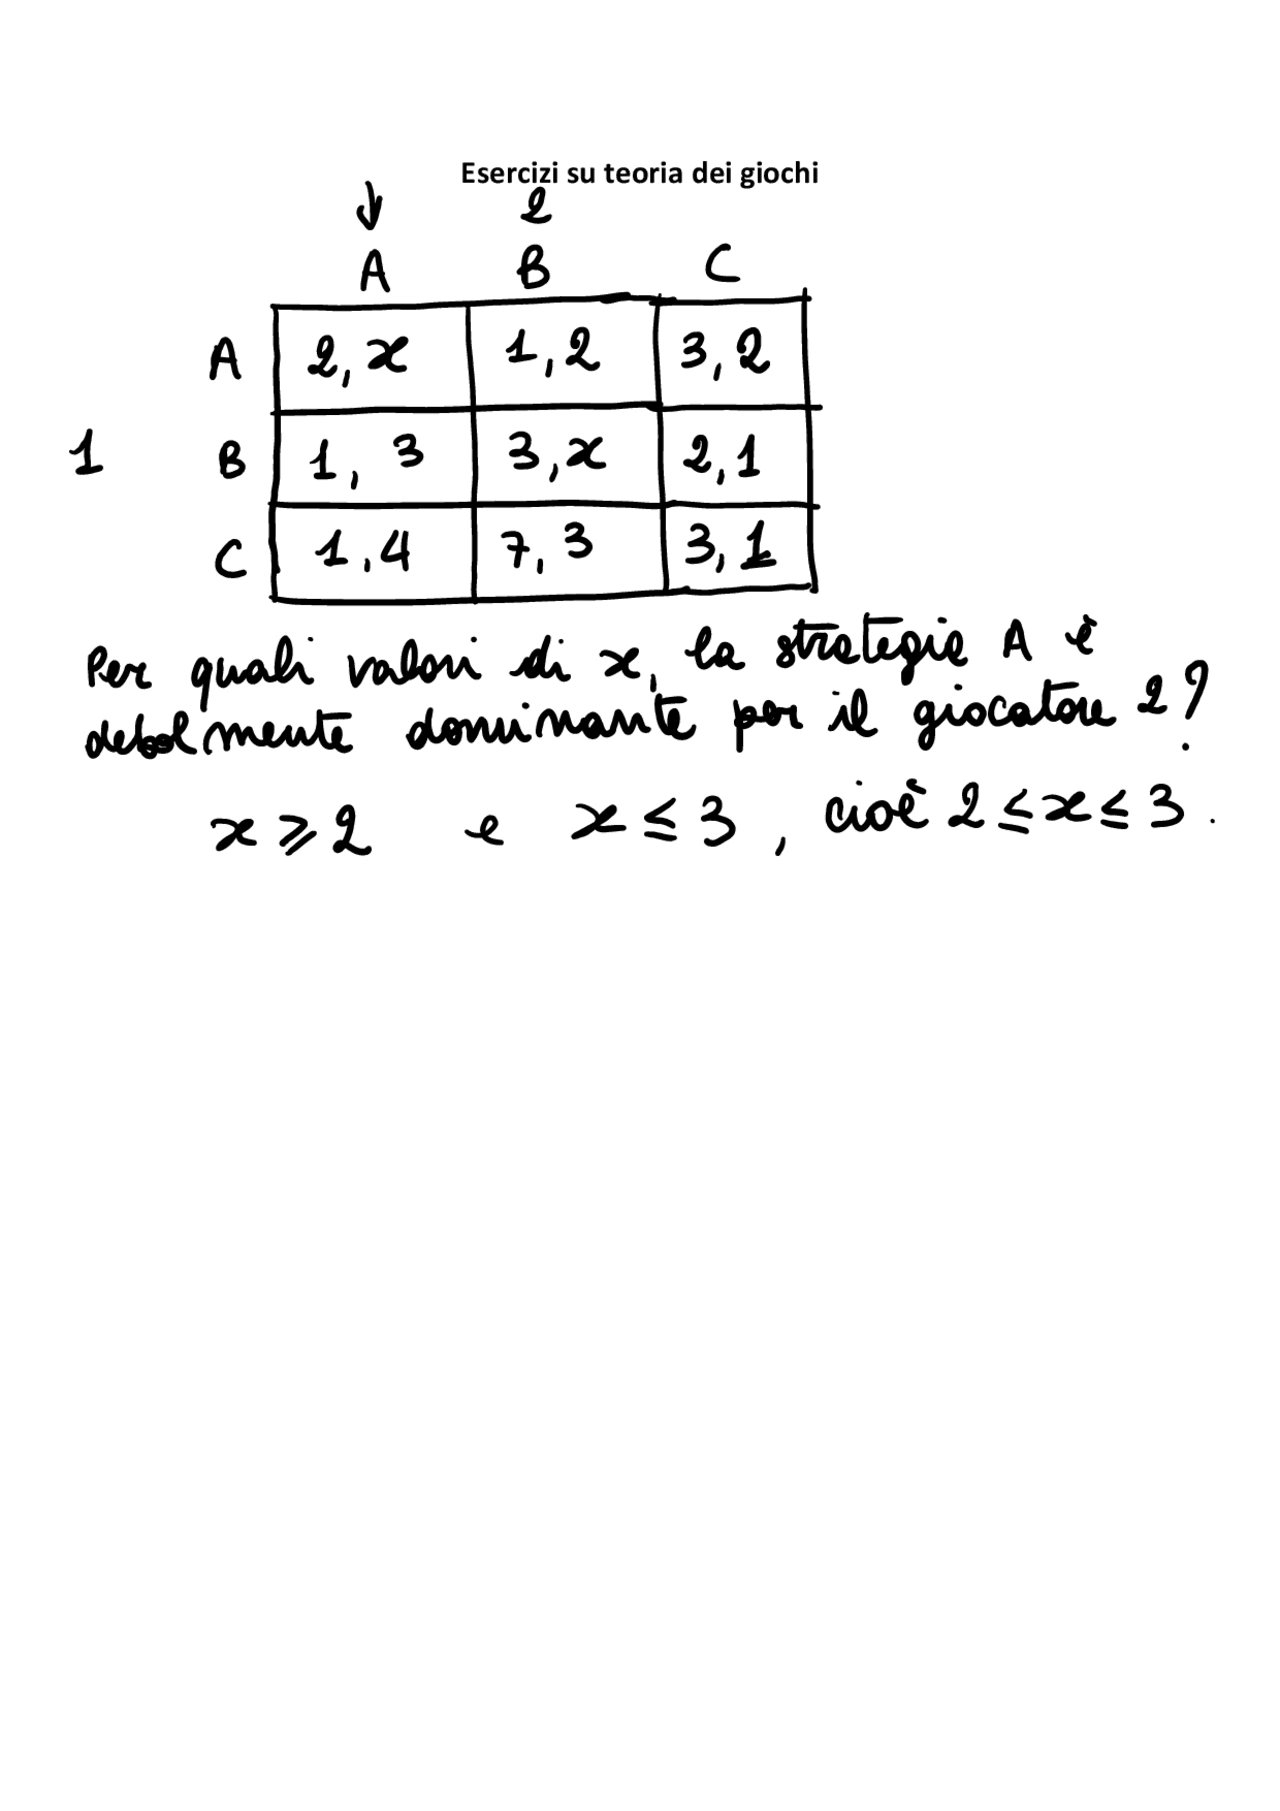 Esercizi su teoria dei giochi
2
A B C
A 2, x 1, 2 3, 2
1 B 1, 3 3, x 2, 1
C 1, 4 7, 3 3, 1
Per quali valori di x, la strategia A è
debolmente dominante per il giocatore 2?
x ⩾ 2 e x ≤ 3, cioè 2 ≤ x ≤ 3.